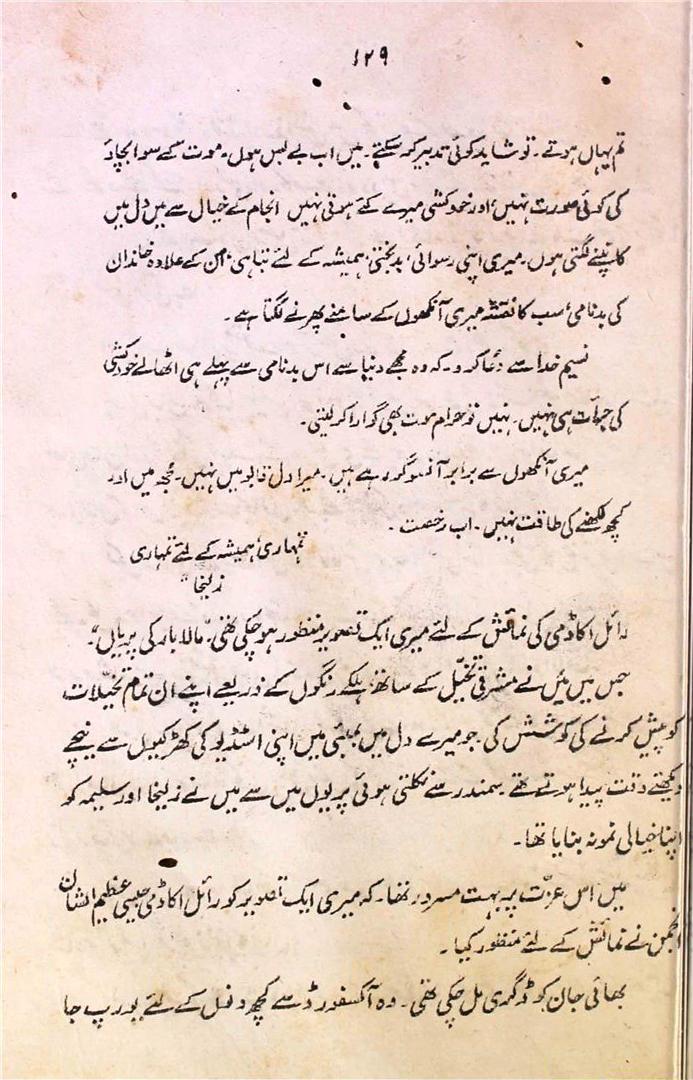 ۱۲۹
تم یہاں ہوتے۔ تو شاید کوئی تدبیر کر سکتے۔ میں اب بے بس ہوں۔ موت کے سوا بچاؤ
کی کوئی صورت نہیں، اور خودکشی میرے کئے ہوتی نہیں انجام کے خیال سے میں دل میں
کانپنے لگتی ہوں۔ میری اپنی رسوائی، بدبختی، ہمیشہ کے لئے تباہی، اس کے علاوہ خاندان
کی بدنامی، سب کا نقشہ میری آنکھوں کے سامنے پھرنے لگتا ہے۔
نسیم خدا سے دعا کرو۔ کہ وہ مجھے دنیا سے اس بدنامی سے پہلے ہی اٹھالے خودکشی
کی جرأت ہی نہیں۔ نہیں تو حرام موت بھی گوارا کر لیتی۔
میری آنکھوں سے برابر آنسو گر رہے ہیں۔ میرا دل قابو میں نہیں۔ مجھ میں اور
کچھ لکھنے کی طاقت نہیں۔ اب رخصت۔
تمہاری، ہمیشہ کے لئے تمہاری
زلیخا"
رائل اکاڈمی کی نمائش کے لئے میری ایک تصویر منظور ہو چکی تھی۔ "مالابار کی پریاں"۔
جس میں میں نے مشرقی تخیّل کے ساتھ، ہلکے رنگوں کے ذریعے اپنے ان تمام تخیلات
کو پیش کرنے کی کوشش کی۔ جو میرے دل میں بمبئی میں اپنی اسٹڈیو کی کھڑکیوں سے نیچے
دیکھتے وقت پیدا ہوتے تھے۔ سمندر سے نکلتی ہوئی پریوں میں سے میں نے زلیخا اور سلیمہ کو
اپنا خیالی نمونہ بنایا تھا۔
میں اس عزّت پر بہت مسرور تھا۔ کہ میری ایک تصویر کو رائل اکاڈمی جیسی عظیم الشان
انجمن نے نمائش کے لئے منظور کیا۔
بھائی جان کو ڈگری مل چکی تھی۔ وہ آکسفورڈ سے کچھ دنوں کے لئے یورپ جا